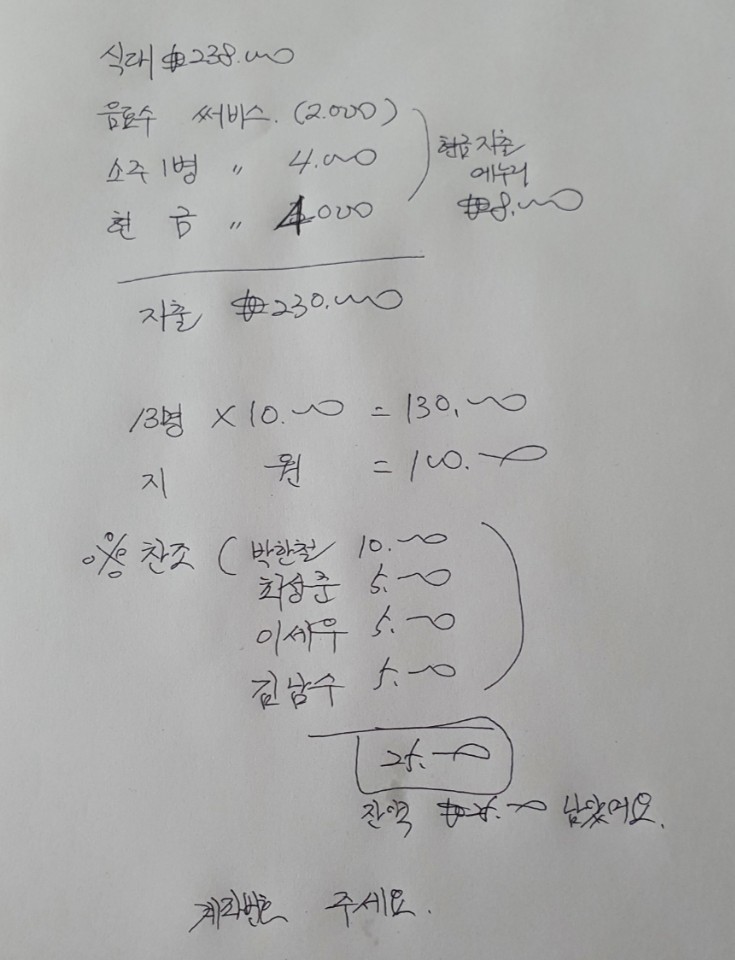 식대 ₩238.000
음료수 써비스. (2.000)
소주1병 〃 4.000
현금 〃 4000
현금지출
에누리
₩8.000
지출 ₩230.000
13명 × 10.000 = 130.000
지 원 = 100.000
※ 찬조 ( 박한철 10.000
최성준 5.000
이세우 5.000
김남수 5.000
25.000
잔액 남았어요.
계좌번호 주세요.